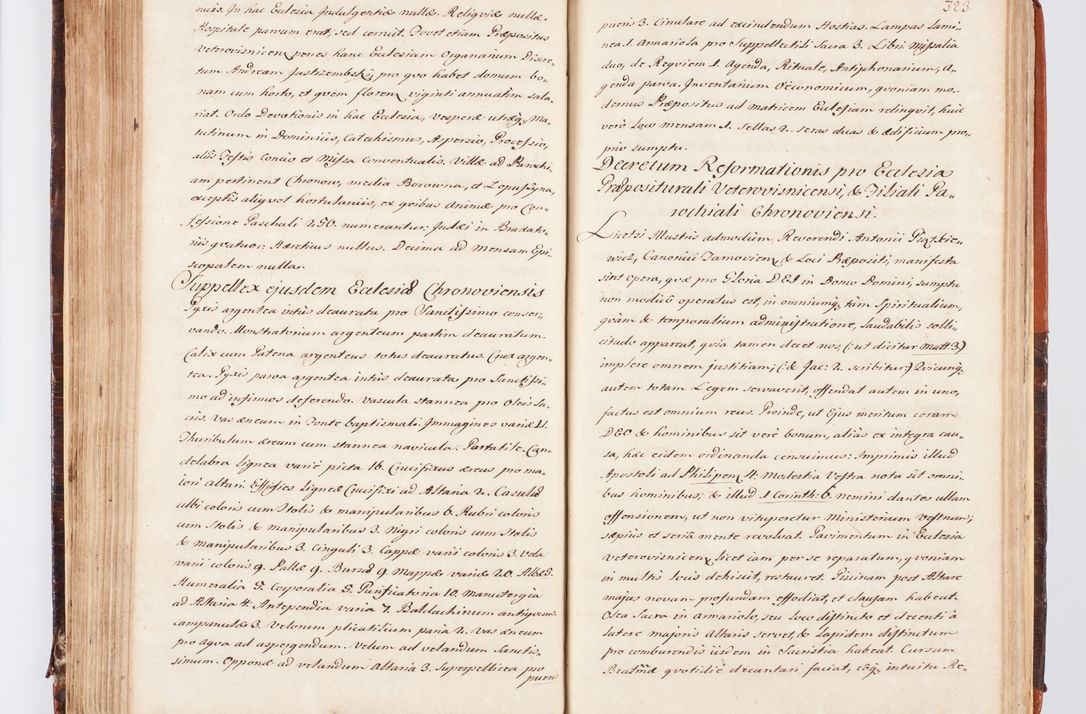 nuis. In hac Eclesia Indulgentiæ nullæ. Reliquiæ nullæ.
Hospitale parvum erat, sed corruit. Dovet etiam Præpositus
Veterovisnicen penes hanc Eculesiam Organarium Discre-
tum Andream Jastrzembski, pro quo habet domum bo-
nam cum horto, et quem floren viginti annuatim sala-
riat. Ordo Devotionis in hac Eclesia, Vesperæ utræq, Ma-
tutinum in Dominicis, Catechismus, Aspersio, Processio,
aliis Festis Concio et Missa Conventualis. Villæ ad Parochi-
am pertinent Chronow, media Borowna, et Lopuszyna,
exceptis aliquot hortulaniis, ex quibus Animæ pro Con-
fessione Paschali 250. numerantur. Judæi in Bradat-
niis quatuor. Hæreticus nullus. Decima ad Mensam Epi-
scopalem nulla.
Suppellex ejusdem Eclesiæ Chronoviensis
Pyxis argentea intus deaurata pro Sanctissimo conser-
vando. Monstratorium argenteum partim deauratum
Calix cum Patena argenteus totus deauratus. Crux argen-
tea. Pyxis parva argentea intus deaurata pro Sanctissi-
mo ad infirmos deferendo. Vascula stannea pro Oleis Sa-
cris. Vas æneum in Fonte baptismali. Immagines variæ 11.
Thuribulum æreum cum stannea navicula. Portatile. Can-
delabra lignea varie picta 16. Crucifixus æreus pro ma-
iori altari. Effigies Ligneæ Crucifixi ad Altaria 2. Casulæ
albi coloris cum Stolis & manipularibus 6. Rubri coloris
cum Stolis & manipularibus 3. Nigri coloris cum Stolis
& manipularibus 3. Cinguli 3. Cappæ varii coloris 3 Vela
varii coloris 9. Pallæ 9. Bursæ 9 Mappæ variæ 20. Albæ 5.
Humeralia 5. Corporalia 5. Purificatoria 10. Manutergia
ad Altaria 4. Antependia varia 7. Baldachinum antiquum
campanulæ 3. Velorum plicatilium paria 2. Vas æneum
pro aqua ad aspergendum. Velum ad velandum Sanctis-
simum. Opponæ ad velandum Altaria 3. Superpellicea pro
pueris
323
pueris 3. Cinulare ad excindendum Hostias. Lampas Lami-
nea 1. Armariola pro Suppellectili Sacra 3. Libri Missalia
duo, de Requiem 1. Agenda, Rituale, Antiphonarium, A-
genda parva. Inventarium Oeconomicum, quoniam mo-
dernus Præpositus ad matricem Eclesiam relinquit, huic
verò Loco mensam 1. sellas 2. seras duas & ædificium pro-
prio sumptu.
Decretum Reformationis pro Ecclesia
Præpositurali Veterovisnicensi, & Filiali Pa-
rochiali Chronoviensi.
Licetsi Illustris admodum Reverendi Antonii
wicz, Canonici Tarnovien & Loci Præpositi, manifesta
sint opera, quæ pro Gloria DEI in Domo Domini, sumptu
non modicô operatus est, in omniumq; tàm Spiritualium,
quàm & temporalium administratione, laudabilis solli-
citudo appareat, quia tamen decet nos, (: ut dicitur Matt 3.)
implere omnem justitiam; (: & Jac: 2. scribitur) Quicunq;
autem totam Legem servaverit, offendat autem in uno,
factus est omnium reus. Proinde, ut Ejus meritum coram
DEO & hominibus sit verè bonum, aliàs ex integra cau-
sa, hæc eidem ordinanda censuimus: Imprimis illud
Apostoli ad Philipen 4. Modestia Vestra nota sit omni-
bus hominibus; & illud 1 Corinth: 6. nemini dantes ullam
offensionem, ut non vituperetur Ministerium Vestrum;
sæpius et seriâ mente revolvat. Pavimentum in Eclesia
Veterovisnicen, licet iam per se reparatum, quoniam
in multis locis dehiscit, restauret. Piscinam post Altare
majus novam profundam effodiat, et clausam habeat.
Olea Sacra in Armariolo, seu Loco distincto et decenti à
latere majoris Altaris servet, & Lapidem distinctum
pro comburendis iisdem in Sacristia habeat. Cursum
Beatinæ quotidie decantari faciat, eôq; intuitu Re-